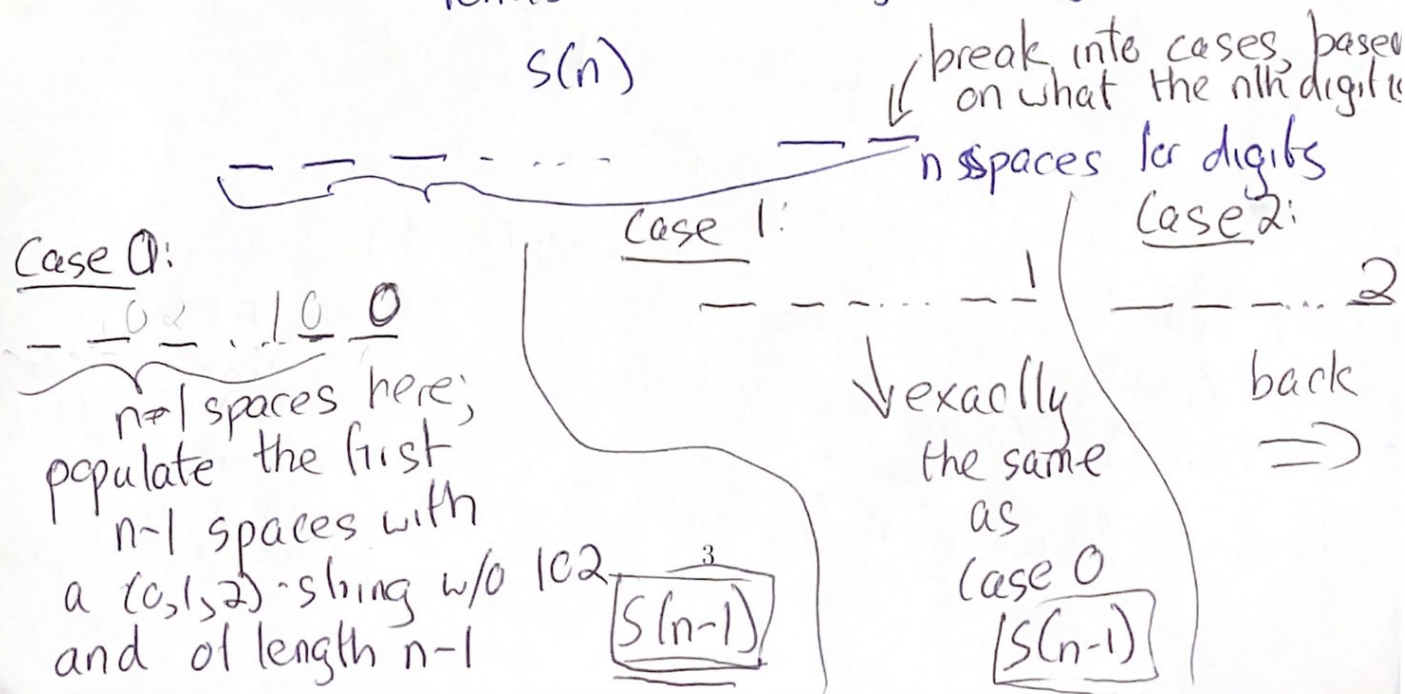 S(n)
break into cases, based
on what the nth digit is
n spaces for digits
Case 0:
0 2 . . 1 0 0
n-1 spaces here;
populate the first
n-1 spaces with
a (0,1,2)-string w/o 102
and of length n-1
3
S(n-1)
Case 1:
1
exactly
the same
as
Case 0
S(n-1)
Case 2:
2
back